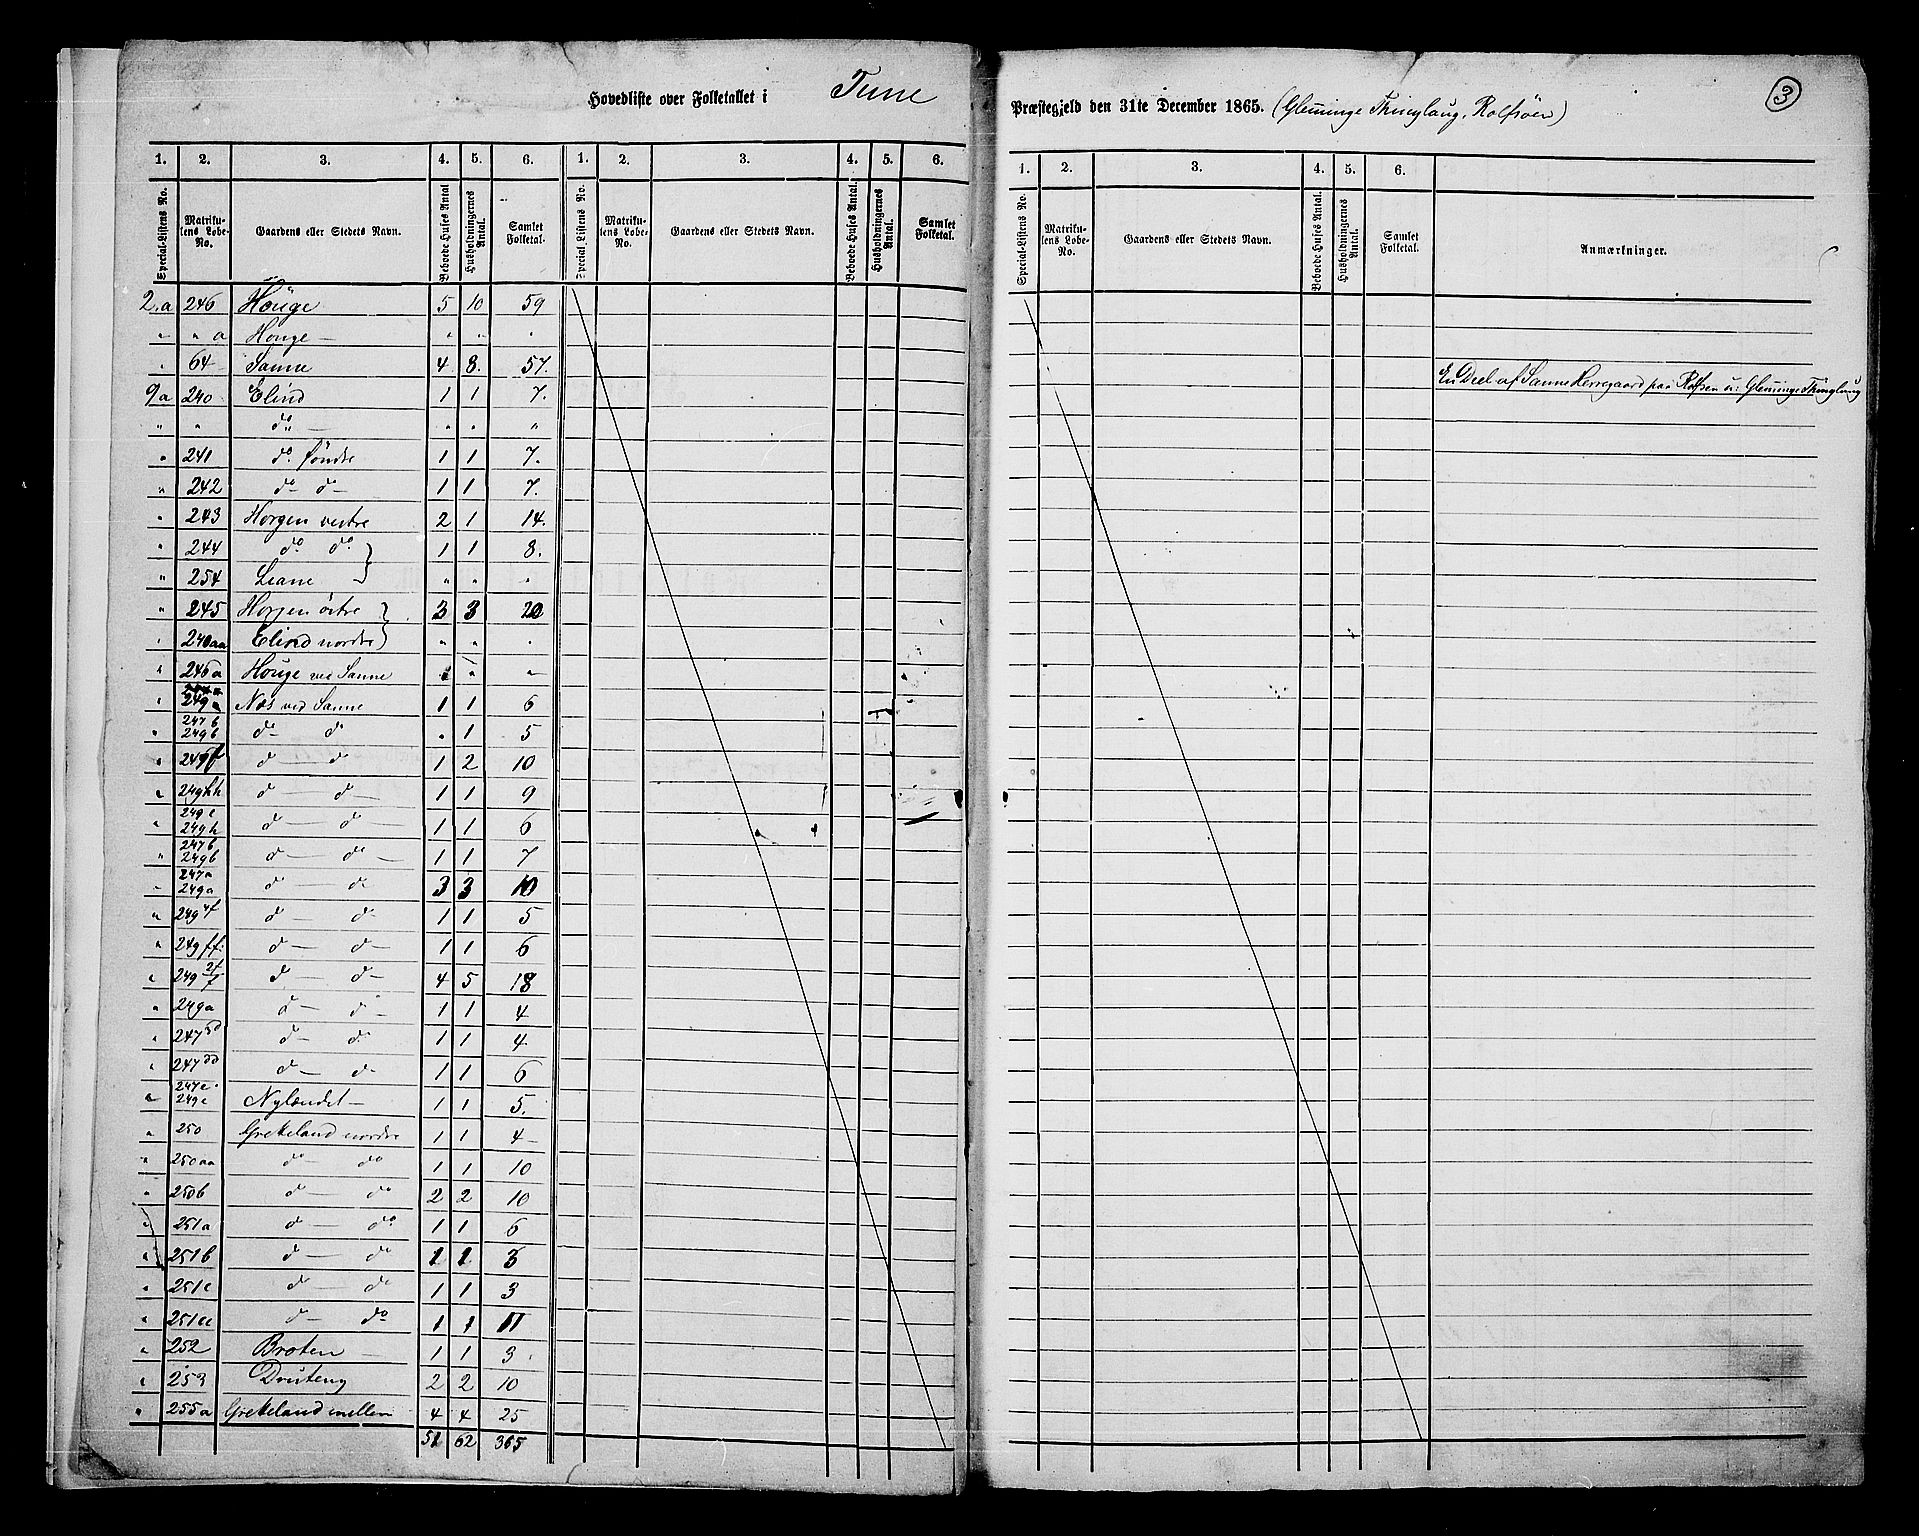 Hovedliste over Folketallet i Tune Præstegjeld den 31te December 1865. (Glemminge Thinglaug, Rolfsöen)
3
1. 2. 3. 4. 5. 6. 1. 2. 3. 4. 5. 6.
Special-Listens No. Matrikulens Løbe-No. Gaardens eller Stedets Navn. Beboede Huses Antal Husholdningernes Antal. Samlet Folketal. Special Listens No. Matrikulens Løbe-No. Gaardens eller Stedets Navn. Beboede Huses Antal. Husholdningernes Antal. Samlet Folketal.
1. 2. 3. 4. 5. 6.
Special-Listens No. Matrikulens Løbe-No. Gaardens eller Stedets Navn. Beboede Huses Antal. Husholdningernes Antal. Samlet Folketal. Anmærkninger.
2.a 246 Houge 5 10 59
" " a Houge — " " "
" 64 Sanne 4 8. 57.
En Deel af Sanne Herregaard paa Rolfsøen u: Glemminge Thinglaug
9a 240 Elind 1 1 7.
" " do — " " "
" 241 do Søndre 1 1 7.
" 242 do do 1 1 7.
" 243 Horgen vestre 2 1 14.
" 244 do do } 1 1 8.
" 254 Leane } " " "
" 245 Horgen østre } 3 3 20
" 240aa Elind nordre } " " "
" 246a Houge ved Sanne " " "
" 249a Næs ved Sanne 1 1 6
" 247b 249b do do " 1 5
" 249f d — d 1 2 10
" 249hh d — d — 1 1 9
" 249e 249h d — do — 1 1 6
" 247b 249b d — do — 1 1 7
" 247a 249a d — do 3 3 10
" 249 4f d — d 1 1 5
" 249ff d — d 1 1 6
" 249 2f d — d 4 5 18
" 249a d — d 1 1 4
" 247 d — d 1 1 4
" 247 dd d — d 1 1 6
" 247e 249e Nylændet — 1 1 5.
" 250 Grekeland nordre 1 1 4
" 250aa do — do 1 1 10
" 250b d — do 2 2 10
" 251a d — do 1 1 6
" 251b d — do 1 1 3
" 251c d — do 1 1 3
" 251cc d — do 1 1 11
" 252 Broten — 1 1 3
" 253 Druteng 2 2 10
" 255a Grekeland mellem 4 4 25
51 62 365